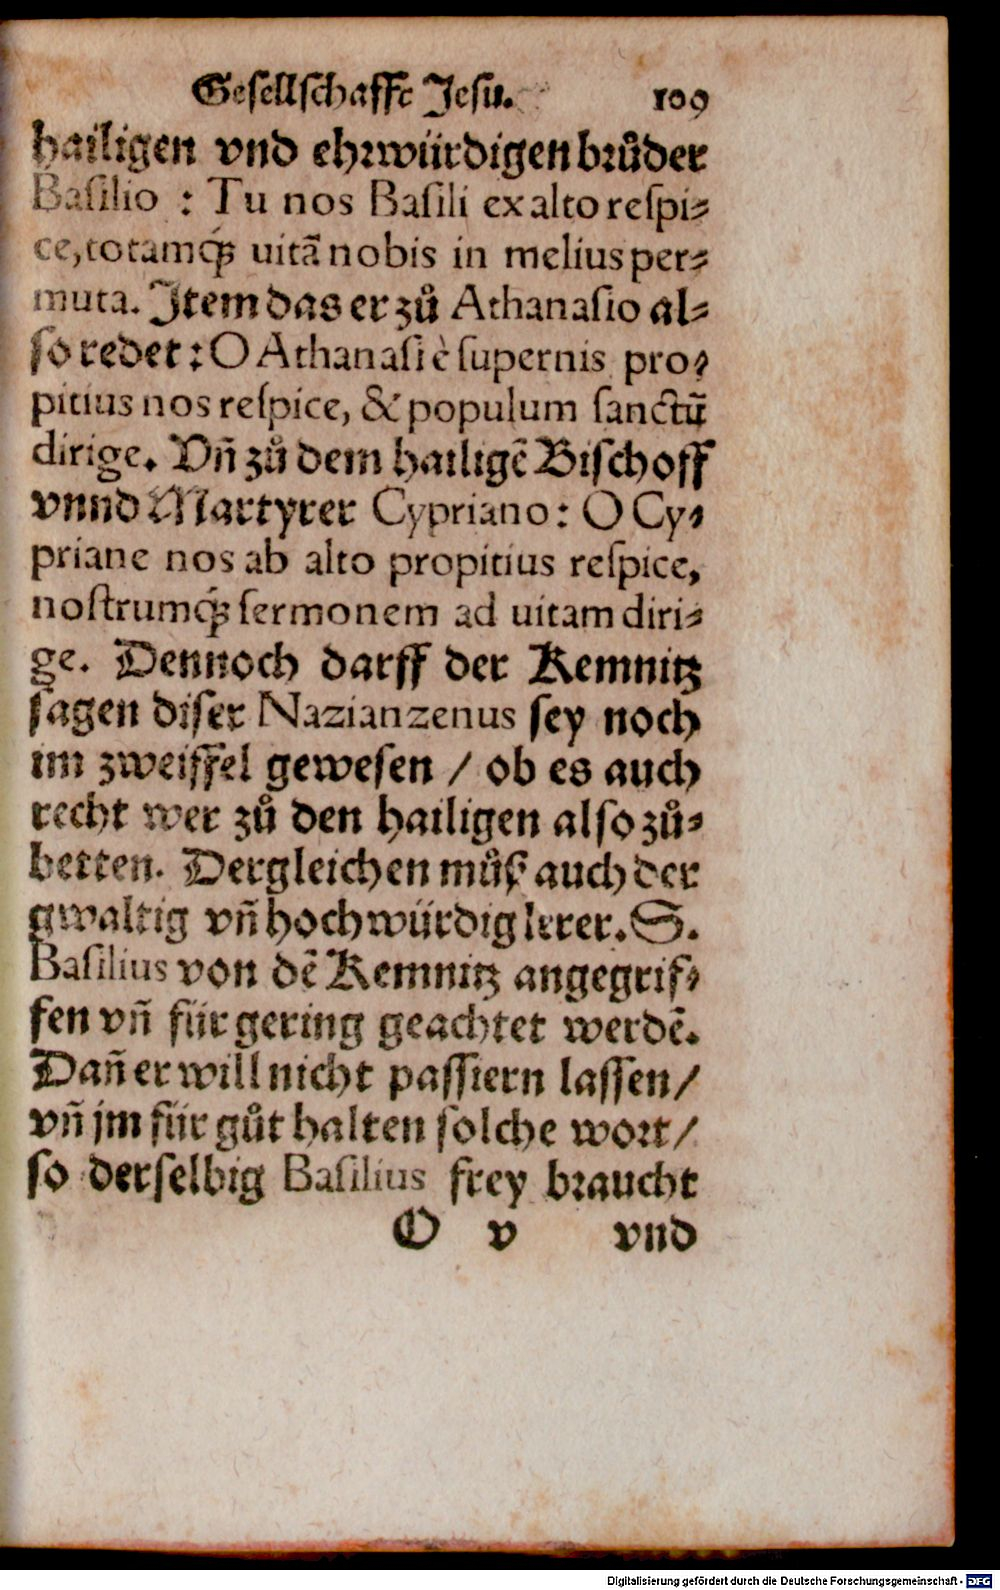 Gesellschafft Jesu. 109
hailigen vnd ehrwürdigen brůder
Basilio : Tu nos Basili ex alto respi⸗
ce, totamq́ꝫ uitã nobis in melius per⸗
muta. Item das er zů Athanasio al⸗
so redet : O Athanasi è supernis pro⸗
pitius nos respice, & populum sanctũ
dirige. Vñ zů dem hailigẽ Bischoff
vnnd Martyrer Cypriano : O Cy⸗
priane nos ab alto propitius respice,
nostrumq́ꝫ sermonem ad uitam diri⸗
ge. Dennoch darff der Kemnitz
sagen diser Nazianzenus sey noch
im zweiffel gewesen / ob es auch
recht wer zů den hailigen also zů⸗
betten. Dergleichen můß auch der
gwaltig vñ hochwürdig lerer. S.
Basilius von dẽ Kemnitz angegrif⸗
fen vñ für gering geachtet werdẽ.
Dañ er will nicht passiern lassen /
vñ jm für gůt halten solche wort /
so derselbig Basilius frey braucht
O v vnd
Digitalisierung gefördert durch die Deutsche Forschungsgemeinschaft - DFG